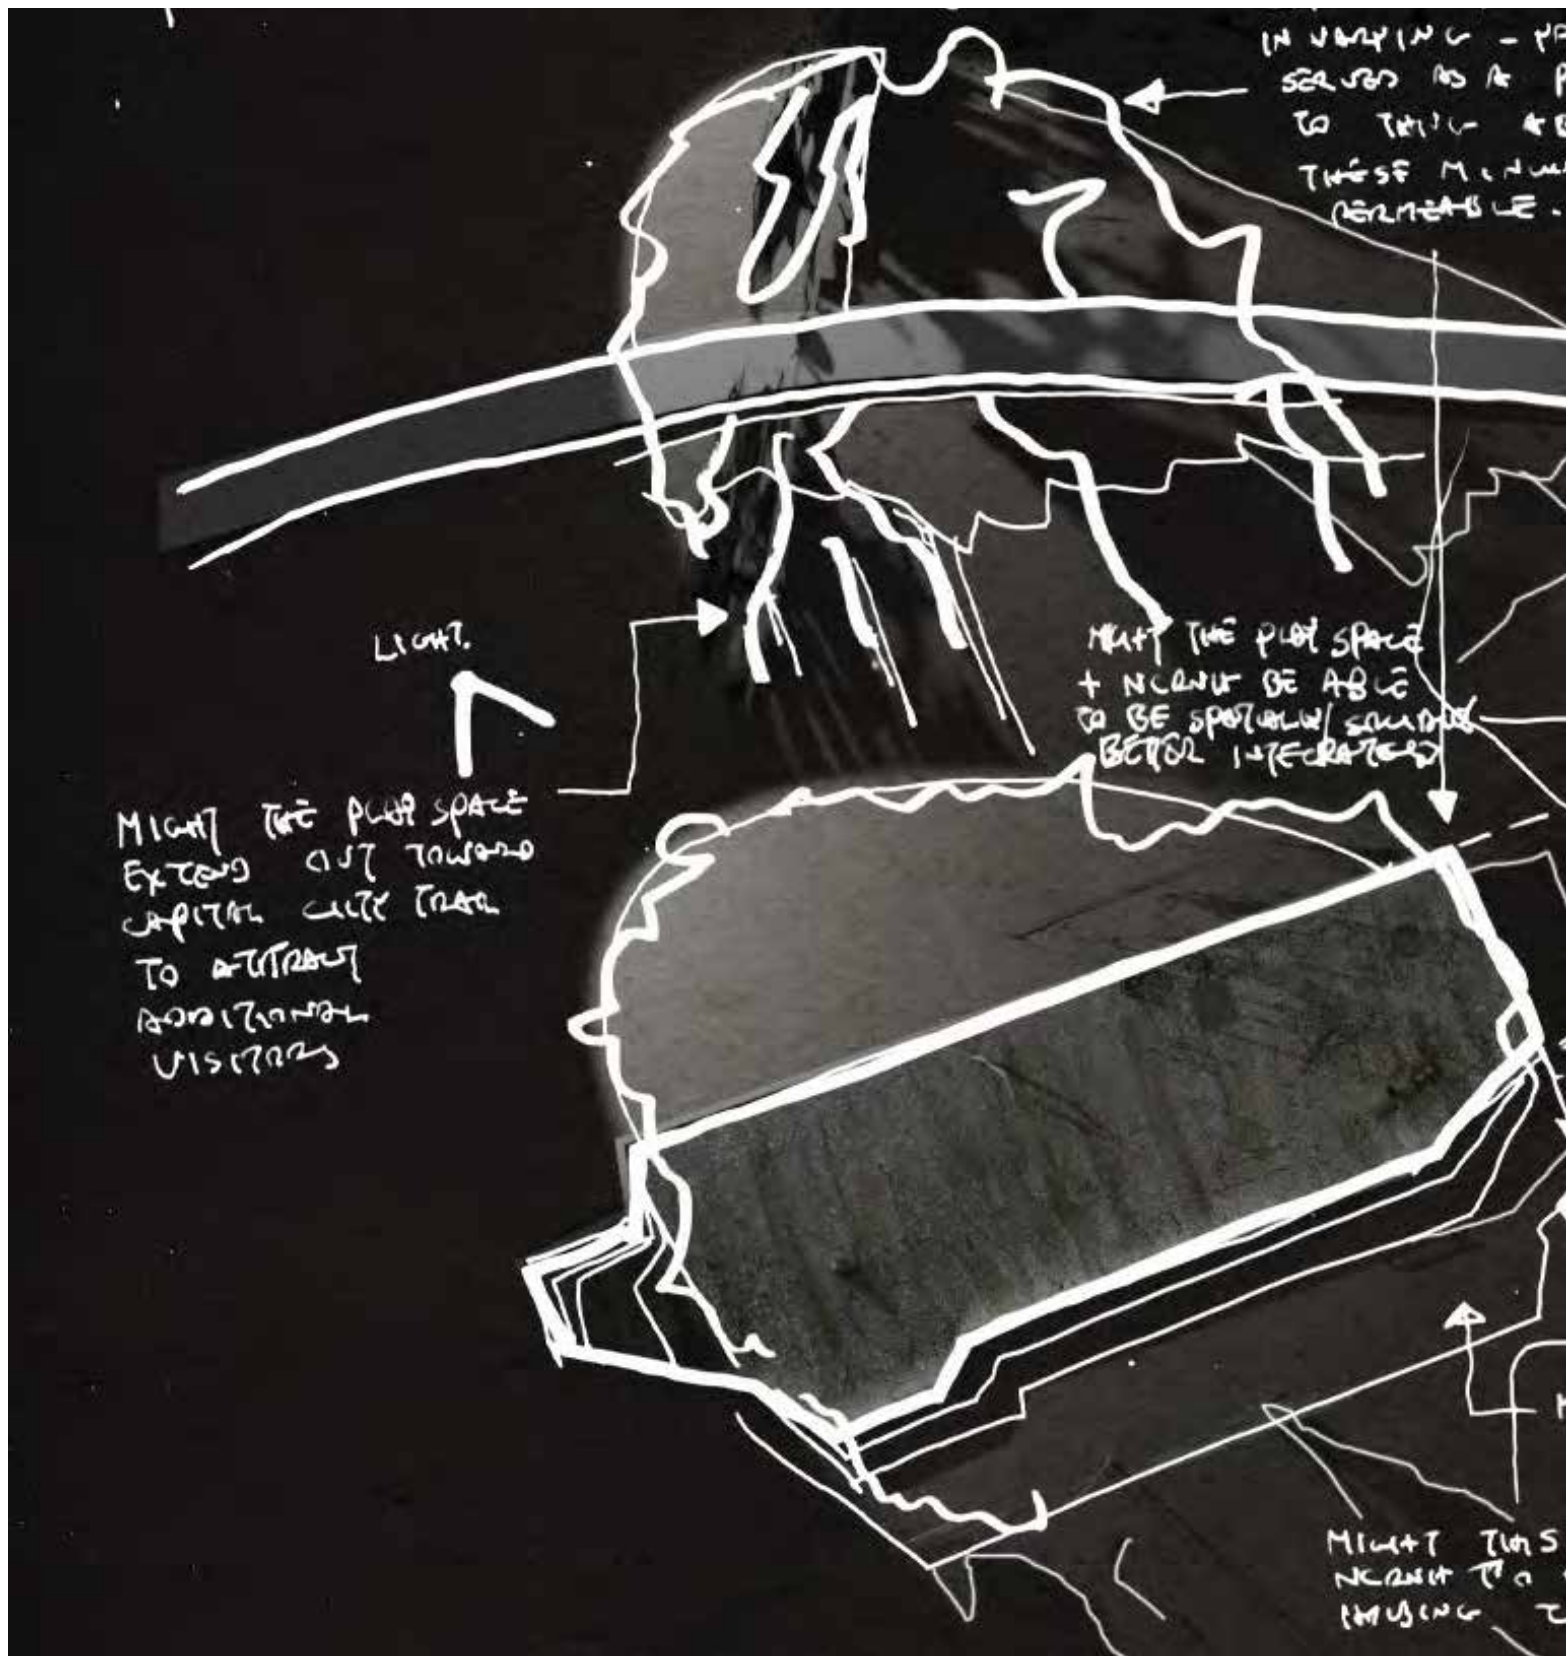 IN VARYING -
SERVED AS A P
TO
THESE
PERMEABLE.
LIGHT.
MIGHT THE PLAY SPACE
+ NCRNH BE ABLE
TO BE SPATIALLY/
BETTER INTEGRATED
MIGHT THE PLAY SPACE
EXTEND OUT TOWARD
CAPITAL CITY TRAIL
TO ATTRACT
ADDITIONAL
VISITORS
MIGHT THIS
NCRNH TO
HOUSING